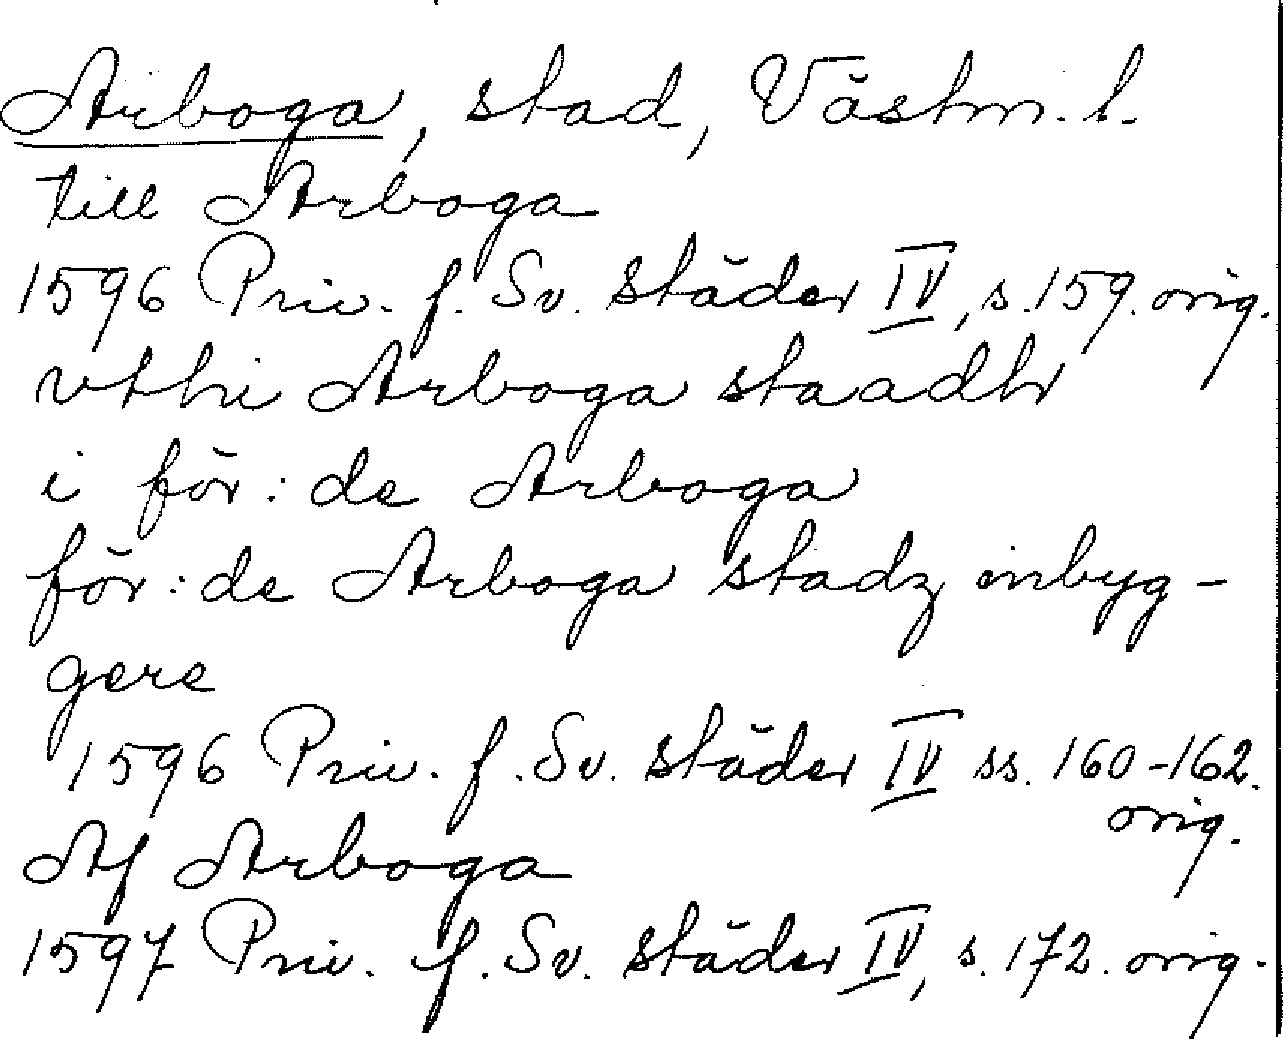 Arboga, stad, Västm. l.
till Arboga
1596 Priv. f. Sv. städer IV, s. 159. orig.
vthi Arboga staadh
i för:de Arboga
för:de Arboga stadz inbyg-
gere
1596 Priv. f. Sv. städer IV ss. 160-162.
orig.
Af Arboga
1597 Priv. f. Sv. städer IV, s. 172. orig.